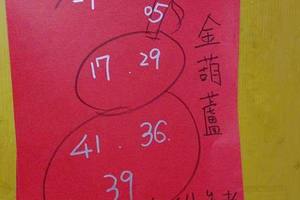 05
17 . 29
41 . 36.
39
金葫蘆